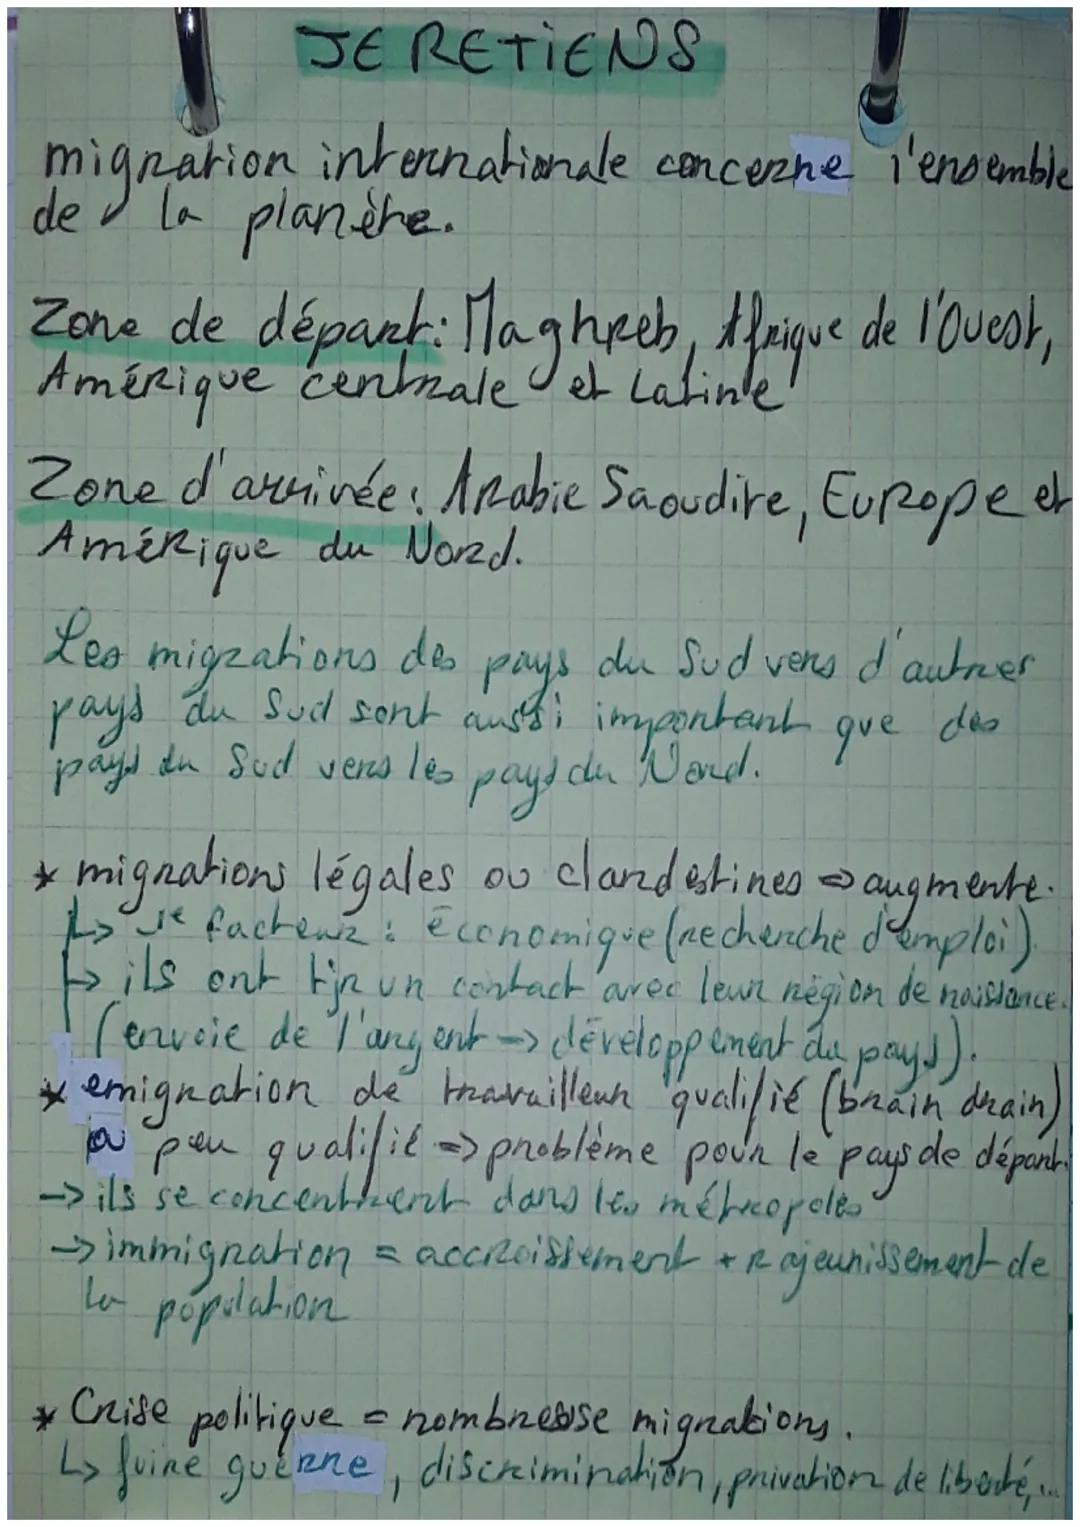 JE RETIENS
migration internationale concerne l'ensemble
de la planète.
Zone de départ: Maghreb, Afrique de l'Ouest,
Amérique centrale et Latine
Zone d'arrivée: Arabie Saoudite, Europe et
Amérique du Nord.
Les migrations des pays du Sud vers d'autres
pays du Sud sont aussi important que des
pays du Sud vers les pays du Nord.
* migrations légales ou clandestines => augmente.
↳ 1e facteur : économique (recherche d'emploi).
↳ ils ont tjr un contact avec leur région de naissance.
(envoie de l'argent -> développement du pays).
* emigration de travailleur qualifié (brain drain)
ou peu qualifié => problème pour le pays de départ.
-> ils se concentrent dans les métropoles
-> immigration = accroissement + rajeunissement de
la population
* Crise politique = nombreuse migrations.
↳ fuire guerre, discrimination, privation de liberté,...